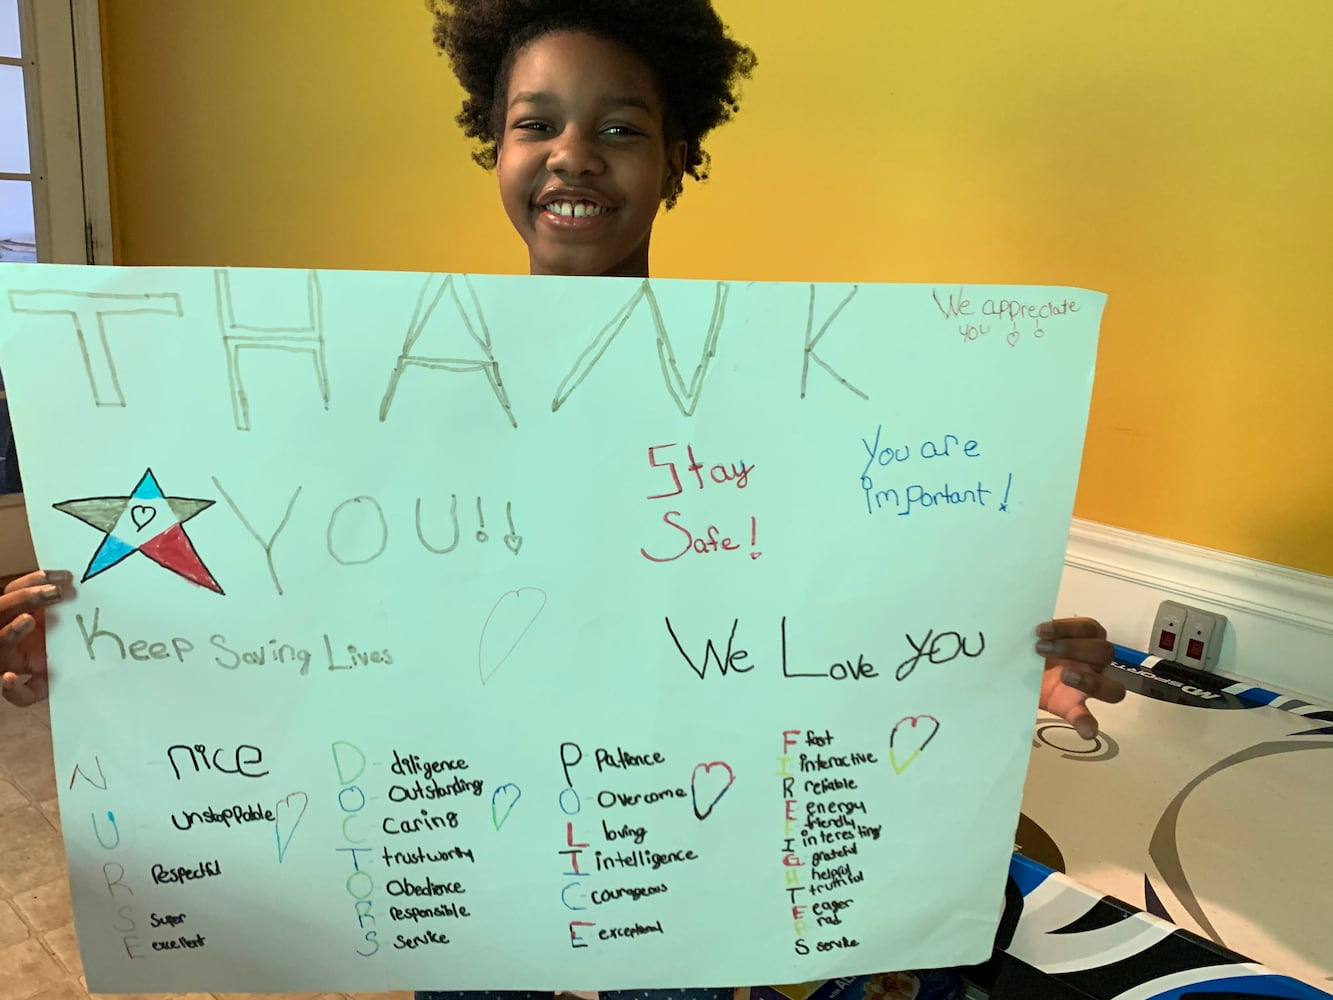 THANK
We appreciate
you !!
YOU!!
Stay
Safe!
You are
important!
Keep Saving Lives
We Love you
N nice
U unstoppable
R Respectful
S Super
E excellent
D - diligence
O - Outstanding
C - Caring
T - trustworthy
O - Obedience
R - responsible
S - Service
P Patience
O - Overcome
L loving
I intelligence
C - courageous
E exceptional
F fast
I interactive
R reliable
E energy
F friendly
I interesting
G grateful
H helpful
T truthful
E eager
R rad
S service
MD SPORTS